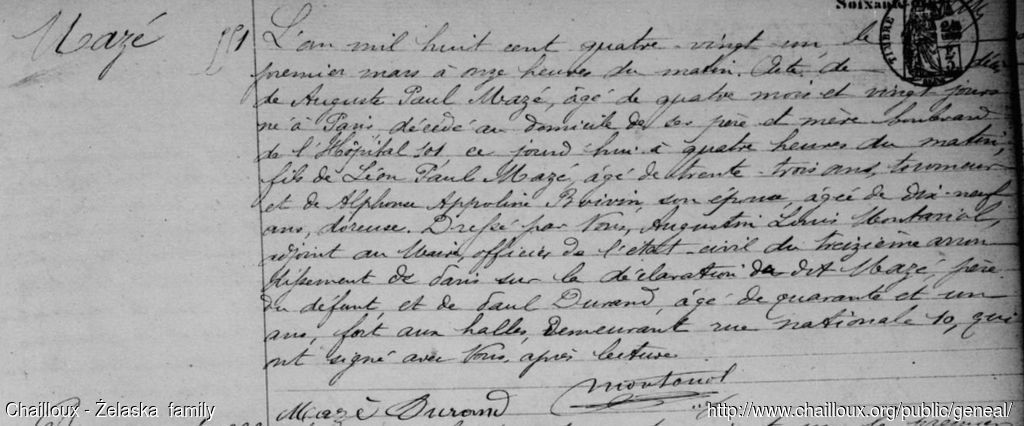 Soixante
TIMBRE
Mazé
551
L'an mil huit cent quatre-vingt un le
premier mars à onze heures du matin. Acte de décès
de Auguste Paul Mazé, âgé de quatre mois et vingt jours
né à Paris, décédé au domicile de ses père et mère boulevard
de l'Hôpital 101 ce jourd'hui à quatre heures du matin,
fils de Léon Paul Mazé, âgé de trente-trois ans, tourneur
et de Alphonse Appoline Boivin, son épouse, âgée de dix-neuf
ans, doreuse. Dressé par Nous, Augustin Louis Montariol,
adjoint au Maire, officier de l'état-civil du treizième arron
dissement de Paris sur la déclaration du dit Mazé, père
du défunt, et de Paul Durand, âgé de quarante et un
ans, fort aux halles, demeurant rue nationale 10, qui
ont signé avec Nous, après lecture
Mazé Durand
Chailloux - Żelaska family
http://www.chailloux.org/public/geneal/
premier